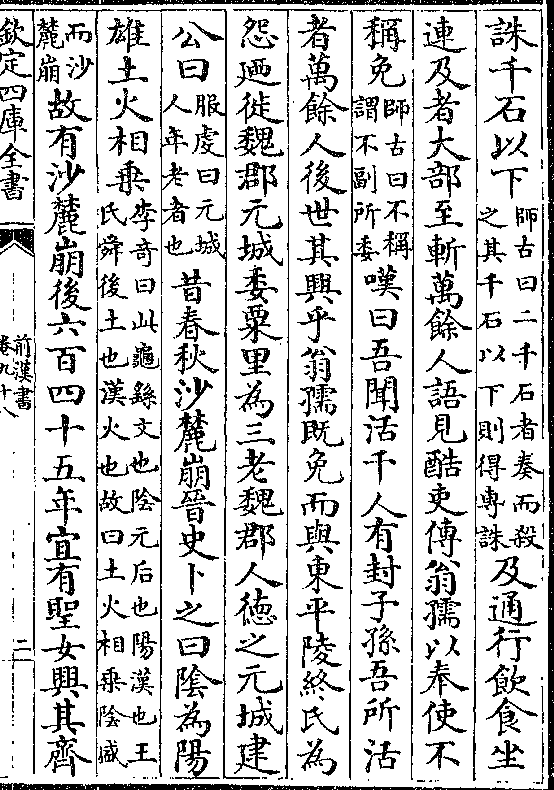 誅千石以下師古曰二千石者奏而殺之其千石以下則得專誅及通行飲食坐
連及者大部至斬萬餘人語見酷吏傳翁孺以奉使不
稱免師古曰不稱謂不副所委嘆曰吾聞活千人有封子孫吾所活
者萬餘人後世其興乎翁孺既免而與東平陵終氏為
怨廼徙魏郡元城委粟里為三老魏郡人徳之元城建
公曰服虔曰元城人年老者也昔春秋沙麓崩晉史卜之曰隂為陽
雄土火相乗李奇曰此龜繇文也隂元后也陽漢也王氏舜後土也漢火也故曰土火相乗隂盛
而沙麓崩故有沙麓崩後六百四十五年宜有聖女興其齊
欽定四庫全書
前漢書
卷九十八
二